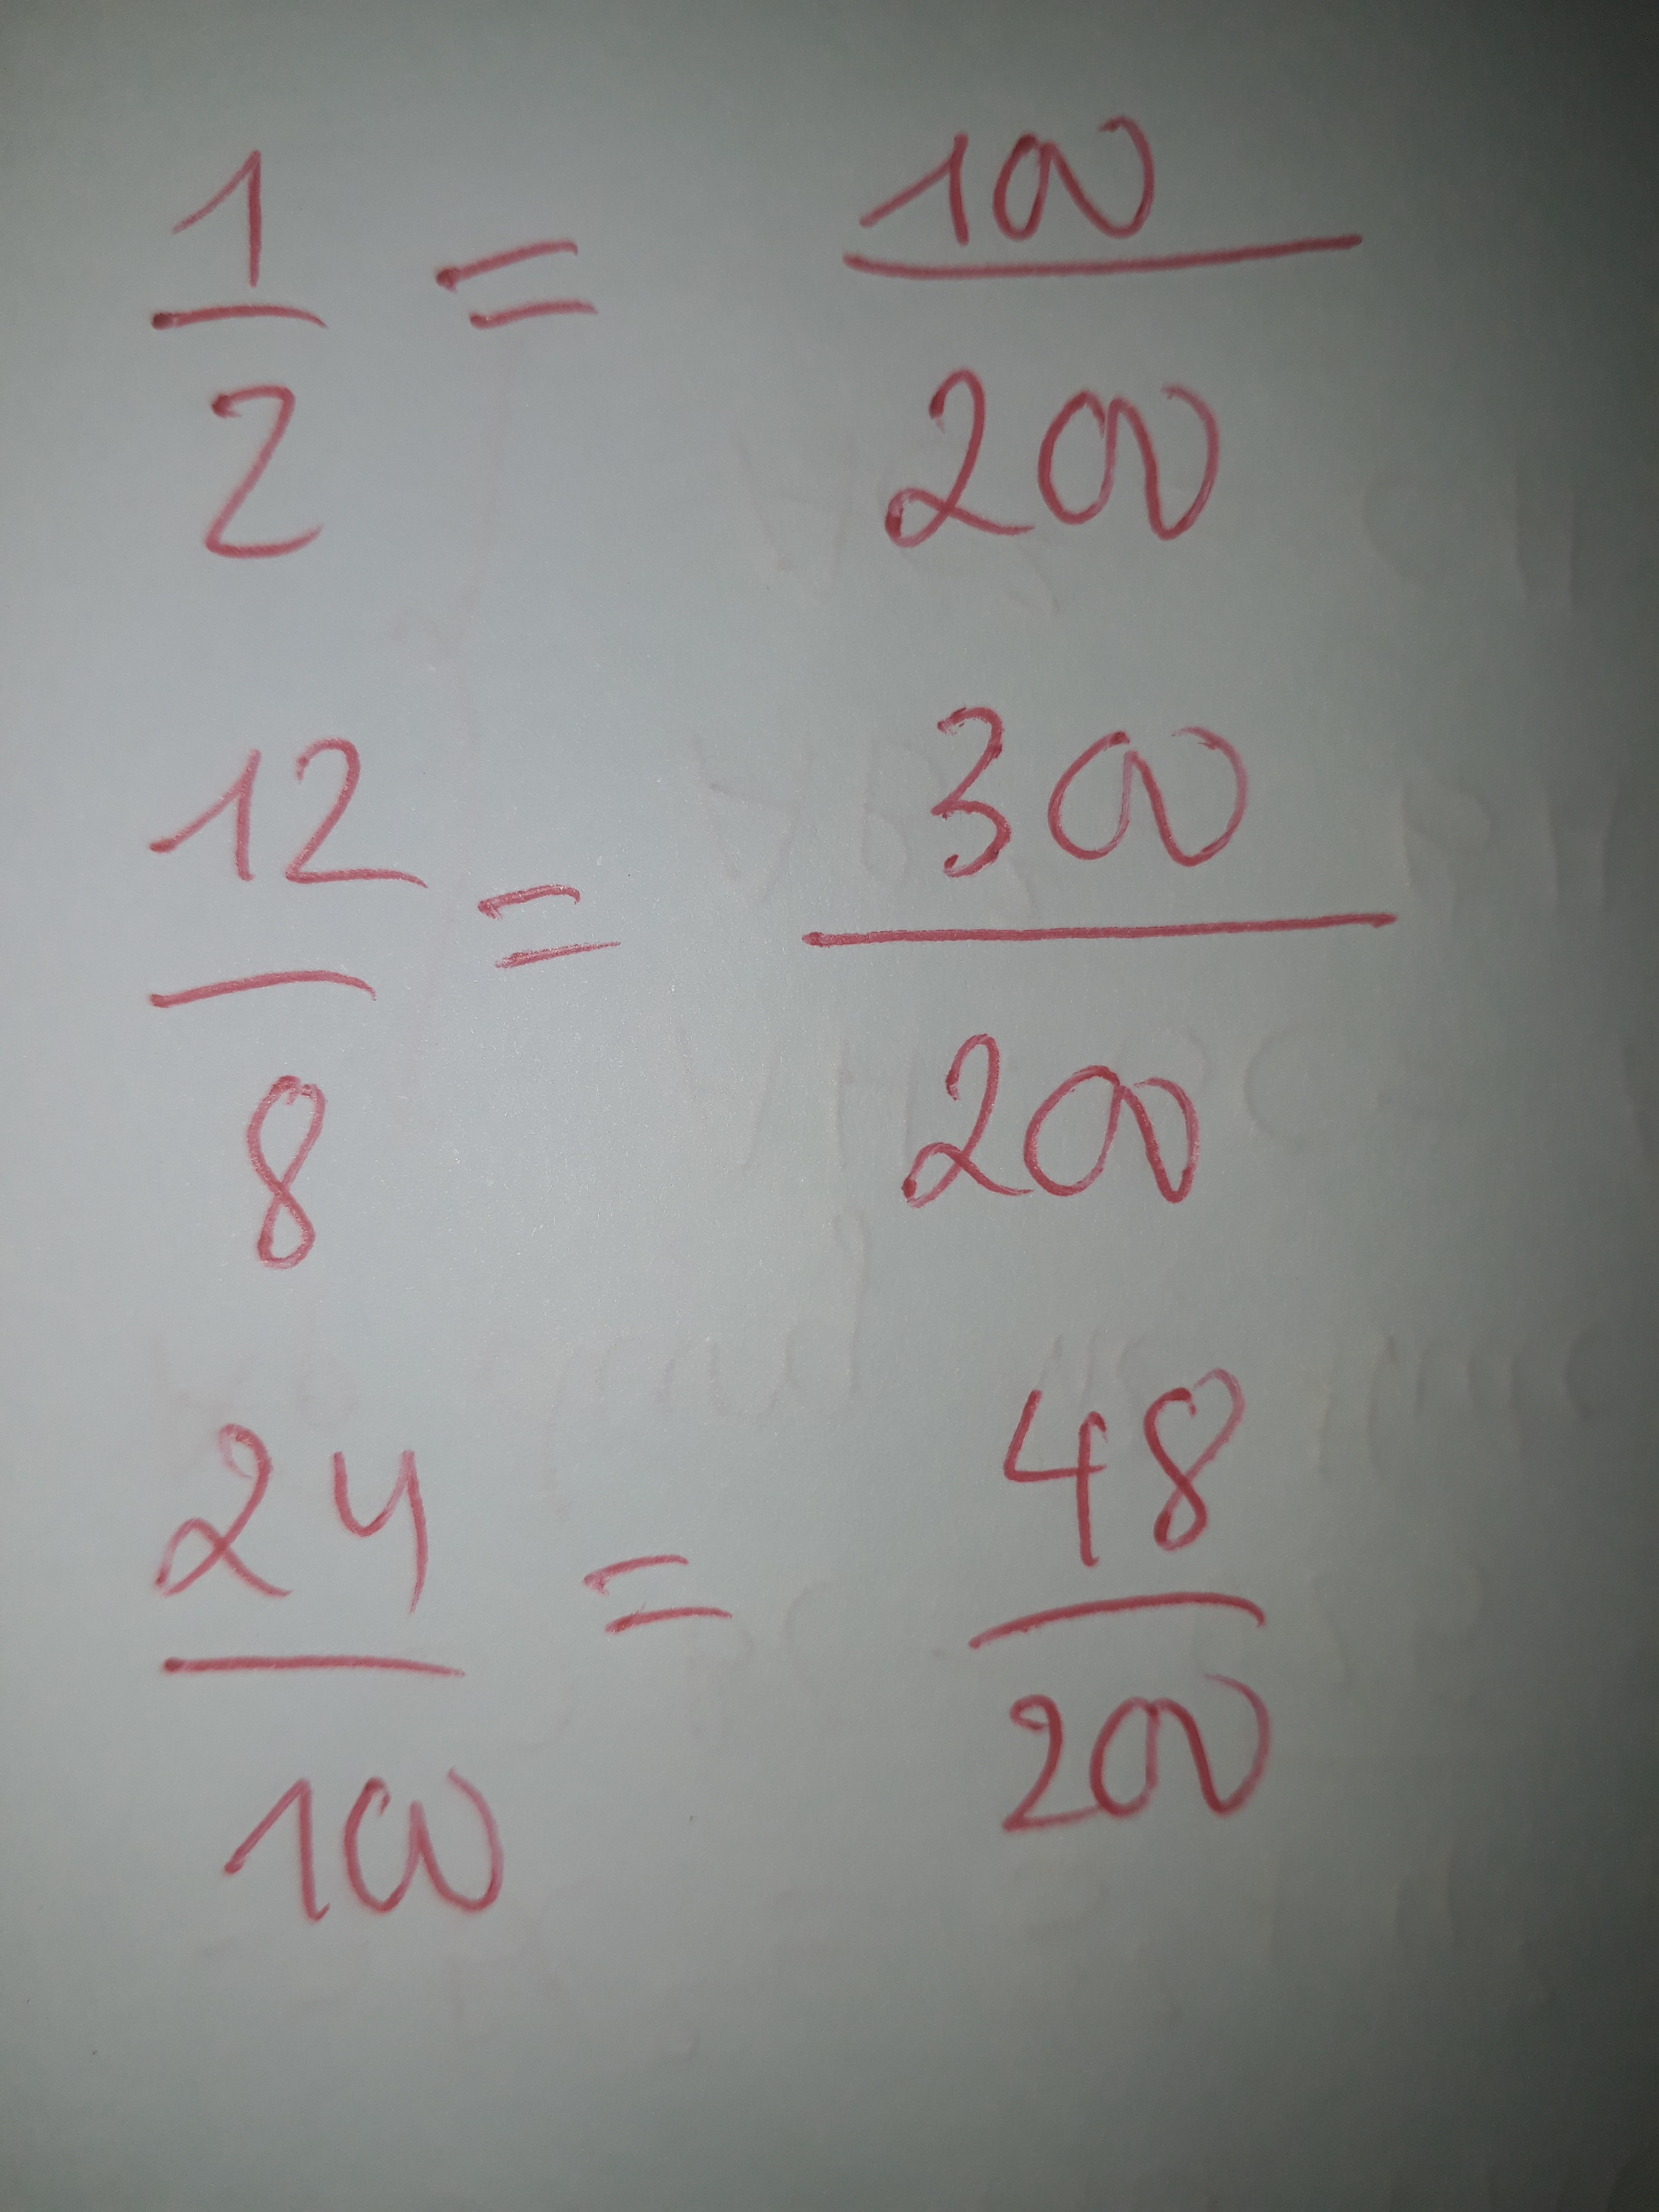 1/2 = 100/200
12/8 = 300/200
24/100 = 48/200